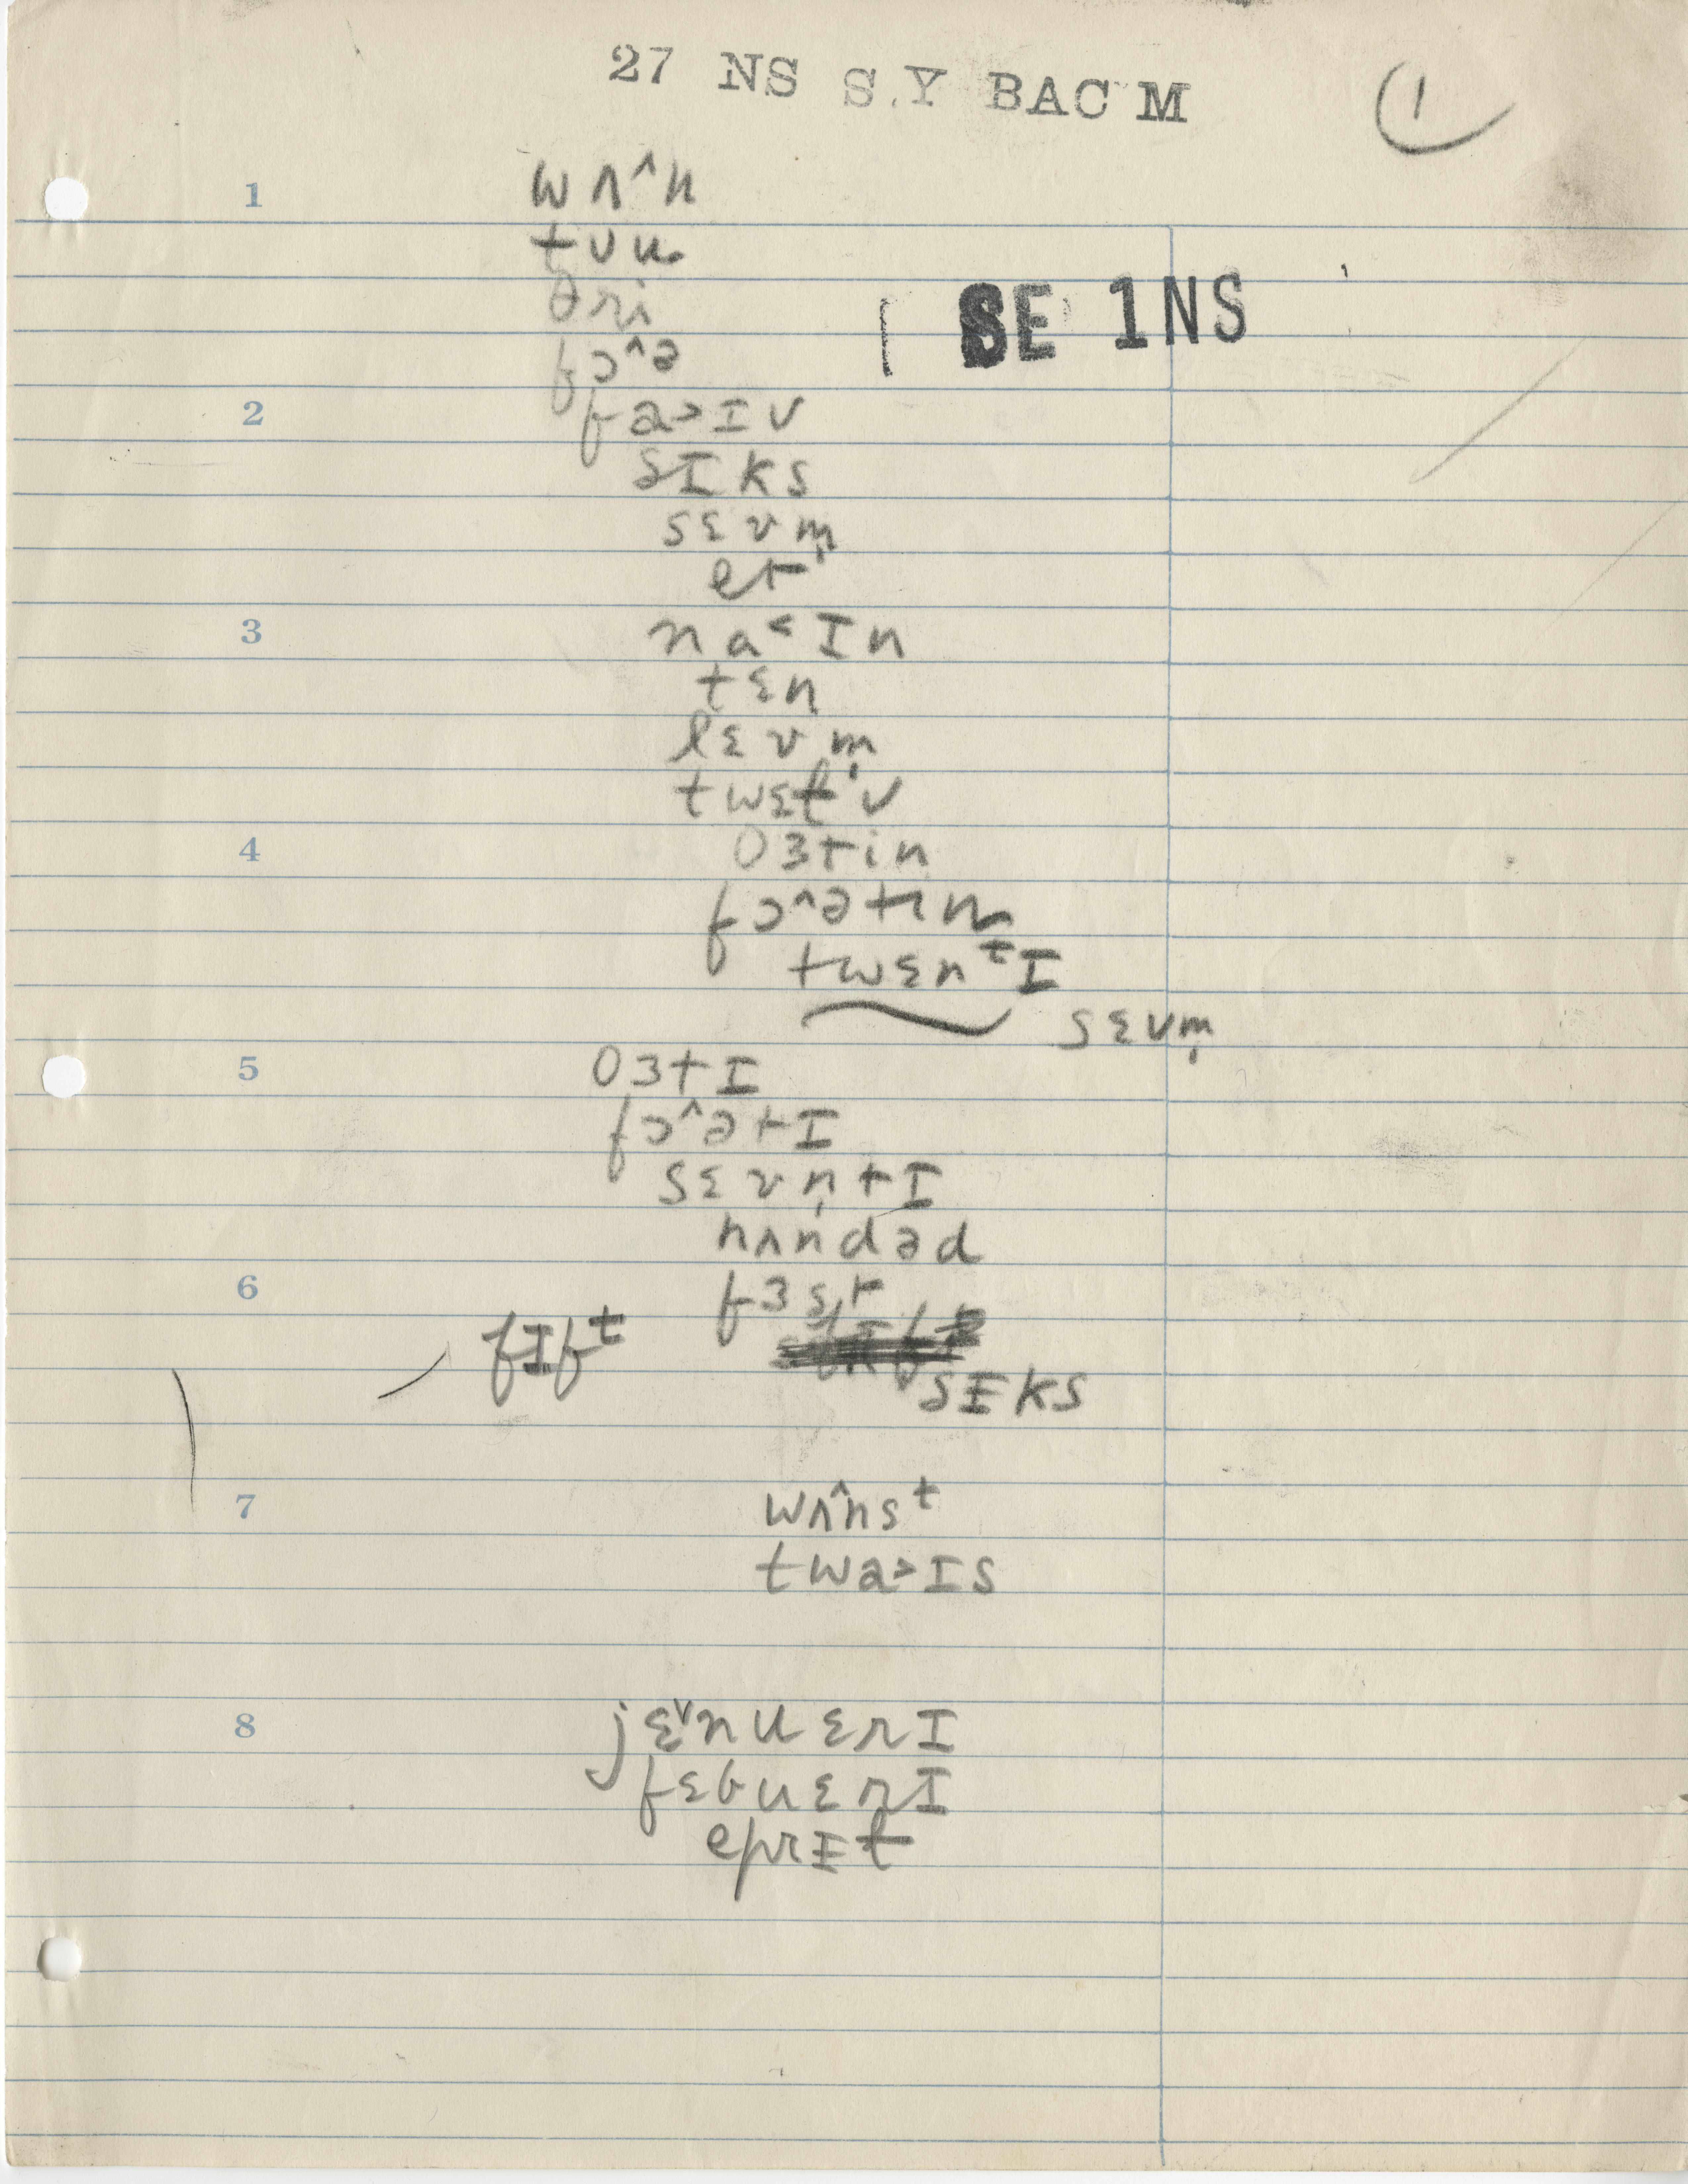 27 NS S.Y BAC M
1
1 wʌ^n
tʊu
θri
SE 1NS
fɔ^ə
2 fa>ɪv
sɪks
sɛvm̩
et
3 na<ɪn
tɛn
lɛvm̩
twɛɫv
4 θɜtin
fɔ^ətin
twɛnᵗɪ
sɛvm̩
5 θɜtɪ
fɔ^ətɪ
sɛvn̩tɪ
hʌndəd
6 fɜst
fɪfᵗ
sɪks
7 wʌ^nsᵗ
twa>ɪs
8 jɛ˅nuɛrɪ
fɛbuɛrɪ
eprɪɫ